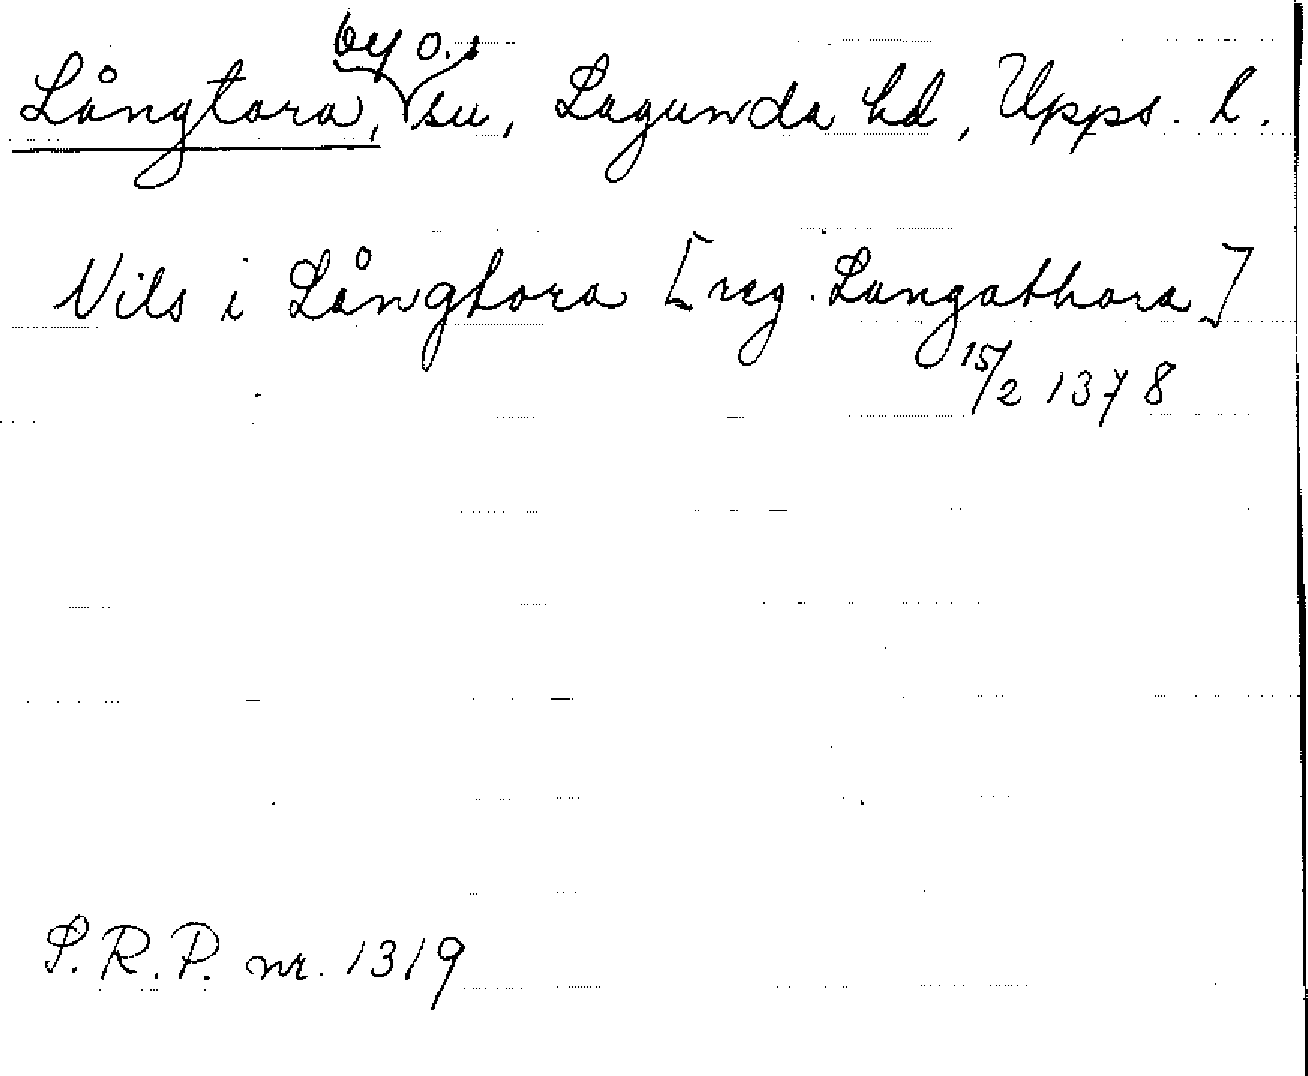 Långtora, by o. sn, Lagunda hd, Upps. l.
Nils i Långtora [reg. Langathora]
15/2 1378
S.R.P. nr. 1319